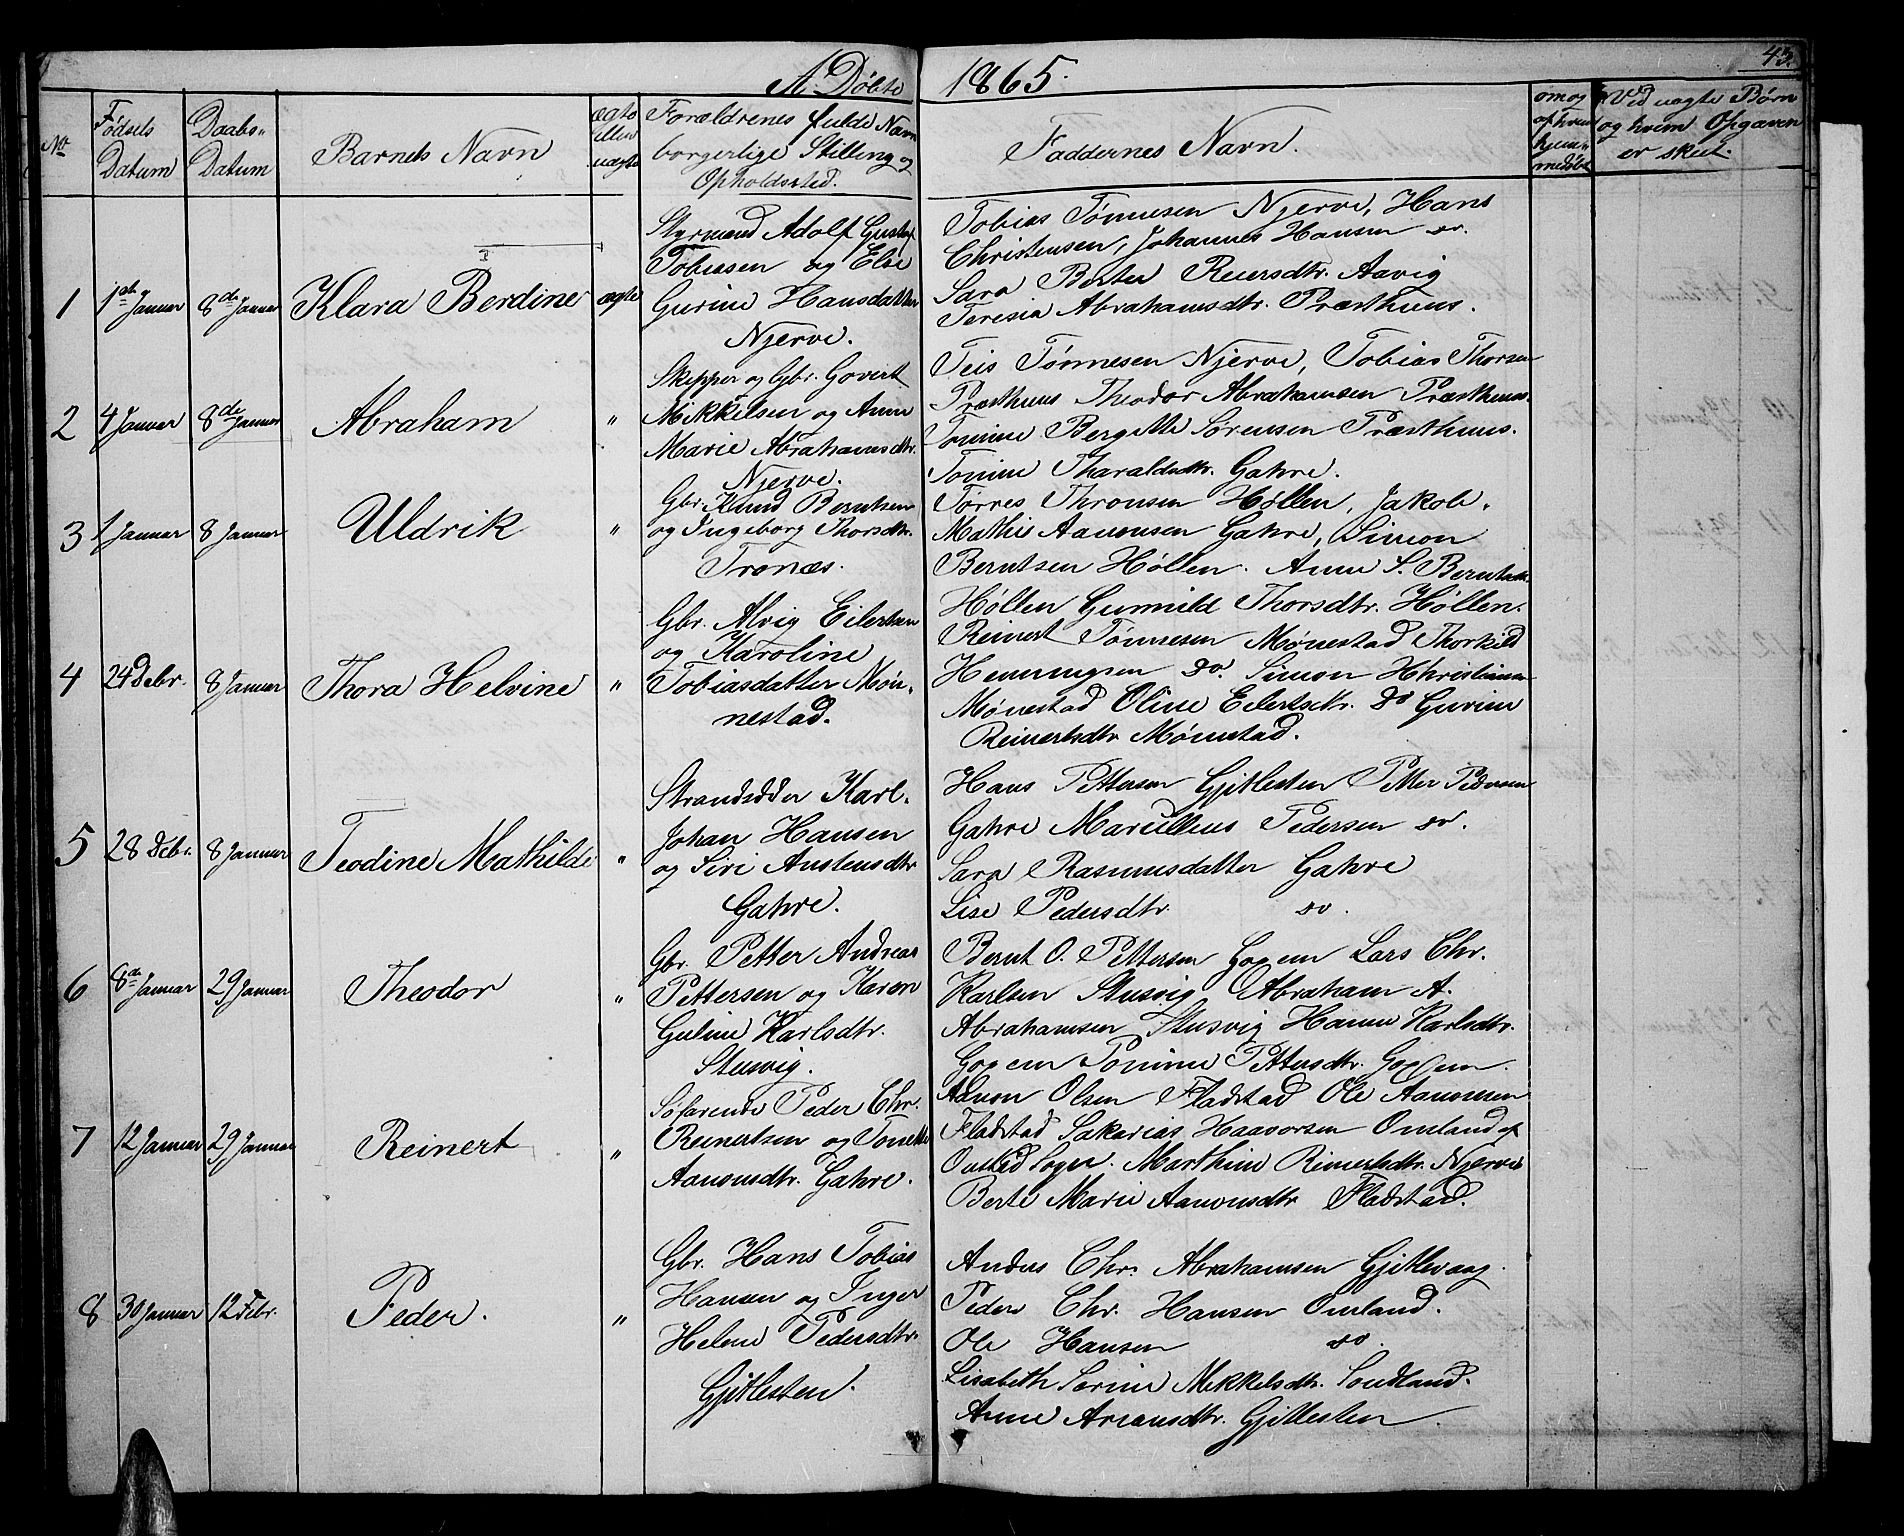 43.
A. Døbte 1865.
No
Fødsels Datum
Daabs- Datum
Barnets Navn
ægte eller uægte
Forældrenes fulde Navn
borgerlige Stilling og
Opholdssted.
Faddernes Navn.
om og
af hvem
hjem-
medøbt
Ved uægte Børn
og hvem Opgaven
er skeet.
1 1ste Januar 8de Januar Klara Berdine ægte
Styrmand Adolf Gustaf
Tobiesen og Else
Gurine Hansdatter
Njerve.
Tobias Tønnesen Njerve, Hans
Christensen, Johannes Hansen do.
Sara Berte Reiersdtr. Aavig
Teresia Abrahamsdtr. Præsthuus.
2 4 Januar 8de Januar Abraham "
Skipper og Gbr. Govert
Mikkelsen og Anne
Marie Abrahamsdtr.
Njerve.
Teis Tønnesen Njerve, Tobias Thorsen
Præsthuus Theodor Abrahamsen Præsthuus.
Tomine Bergitte Sørensen Præsthuus.
Tonine Tharaldsdtr. Gahre.
3 1 Januar 8 Januar Uldrik "
Gbr. Knud Berntsen
og Ingeborg Thorsdtr.
Tronæs.
Tørres Thronsen Høllen, Jakob.
Mathis Aanonsen Gahre, Simon
Berntsen Høllen. Anne S. Berntsdtr.
Høllen Gunnild Thorsdtr. Høllen.
4 24 Debr. 8 Januar Thora Helvine "
Gbr. Alvig Eilertsen
og Karoline
Tobiasdatter Møn-
nestad.
Reinert Tønnesen Mønestad Thorkild
Henningsen do. Simon Christiansen
Mønestad Oline Eilertsdtr. do Gurine
Reinertsdtr Mønnestad.
5 28 Debr. 8 Januar Teodine Mathilde "
Strandsidder Karl-
Johan Hansen
og Siri Austensdtr
Gahre.
Hans Pettersen Gjitlesten Petter Pedersen
Gahre Marcellius Pedersen do.
Sara Rasmusdatter Gahre
Lise Pedersdtr do.
6 8de Januar 29 Januar Theodor "
Gbr. Petter Andreas
Pettersen og Karen
Guline Karlsdtr.
Stusvig.
Bernt O. Pettersen Goxem Lars Chr.
Karlsen Stusvig Abraham A.
Abrahamsen Stusvig Hanne Karlsdtr.
Goxem Tomine Pettersdtr. Goxem.
7 12 Januar 29 Januar Reinert "
Søfarende Peder Chr.
Reinertsen og Tonette
Aanonsdtr. Gahre.
Aanon Olsen Fladstad Ole Aanonsen
Fladstad Sakarias Haavorsen Omland af
Sogn. Marthine Reinertsdtr. Njerve
Berte Marie Aanonsdtr Fladstad.
8 30 Januar 12 Febr. Peder. "
Gbr. Hans Tobias
Hansen og Inger
Helene Pedersdtr.
Gjitlesten.
Anders Chr. Abrahamsen Gjitlevaag.
Peder Chr. Hansen Omland.
Ole Hansen do.
Lisabeth Serine Mikkelsdtr. Sondland.
Anne Ariansdtr. Gjitlesten.